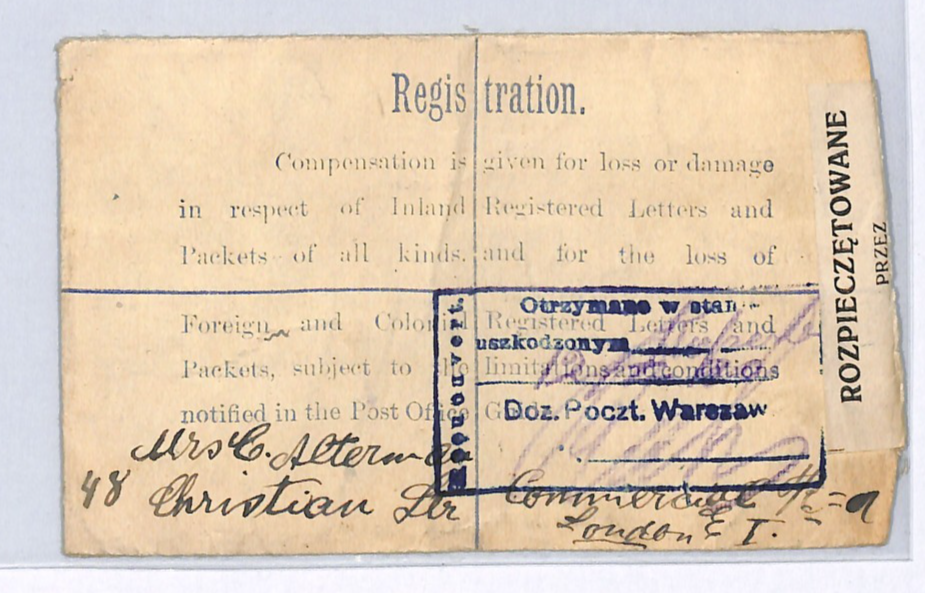 Registration.
Compensation is given for loss or damage
in respect of Inland Registered Letters and
Packets of all kinds, and for the loss of
Foreign and Colonial Registered Letters and
Packets, subject to the limitations and conditions
notified in the Post Office Guide.
Reçu ouvert.
Otrzymano w stan
uszkodzonym
Doz. Poczt. Warszaw
Mrs C. Alterman
48 Christian Str Commercial
London E 1.
ROZPIECZĘTOWANE
PRZEZ